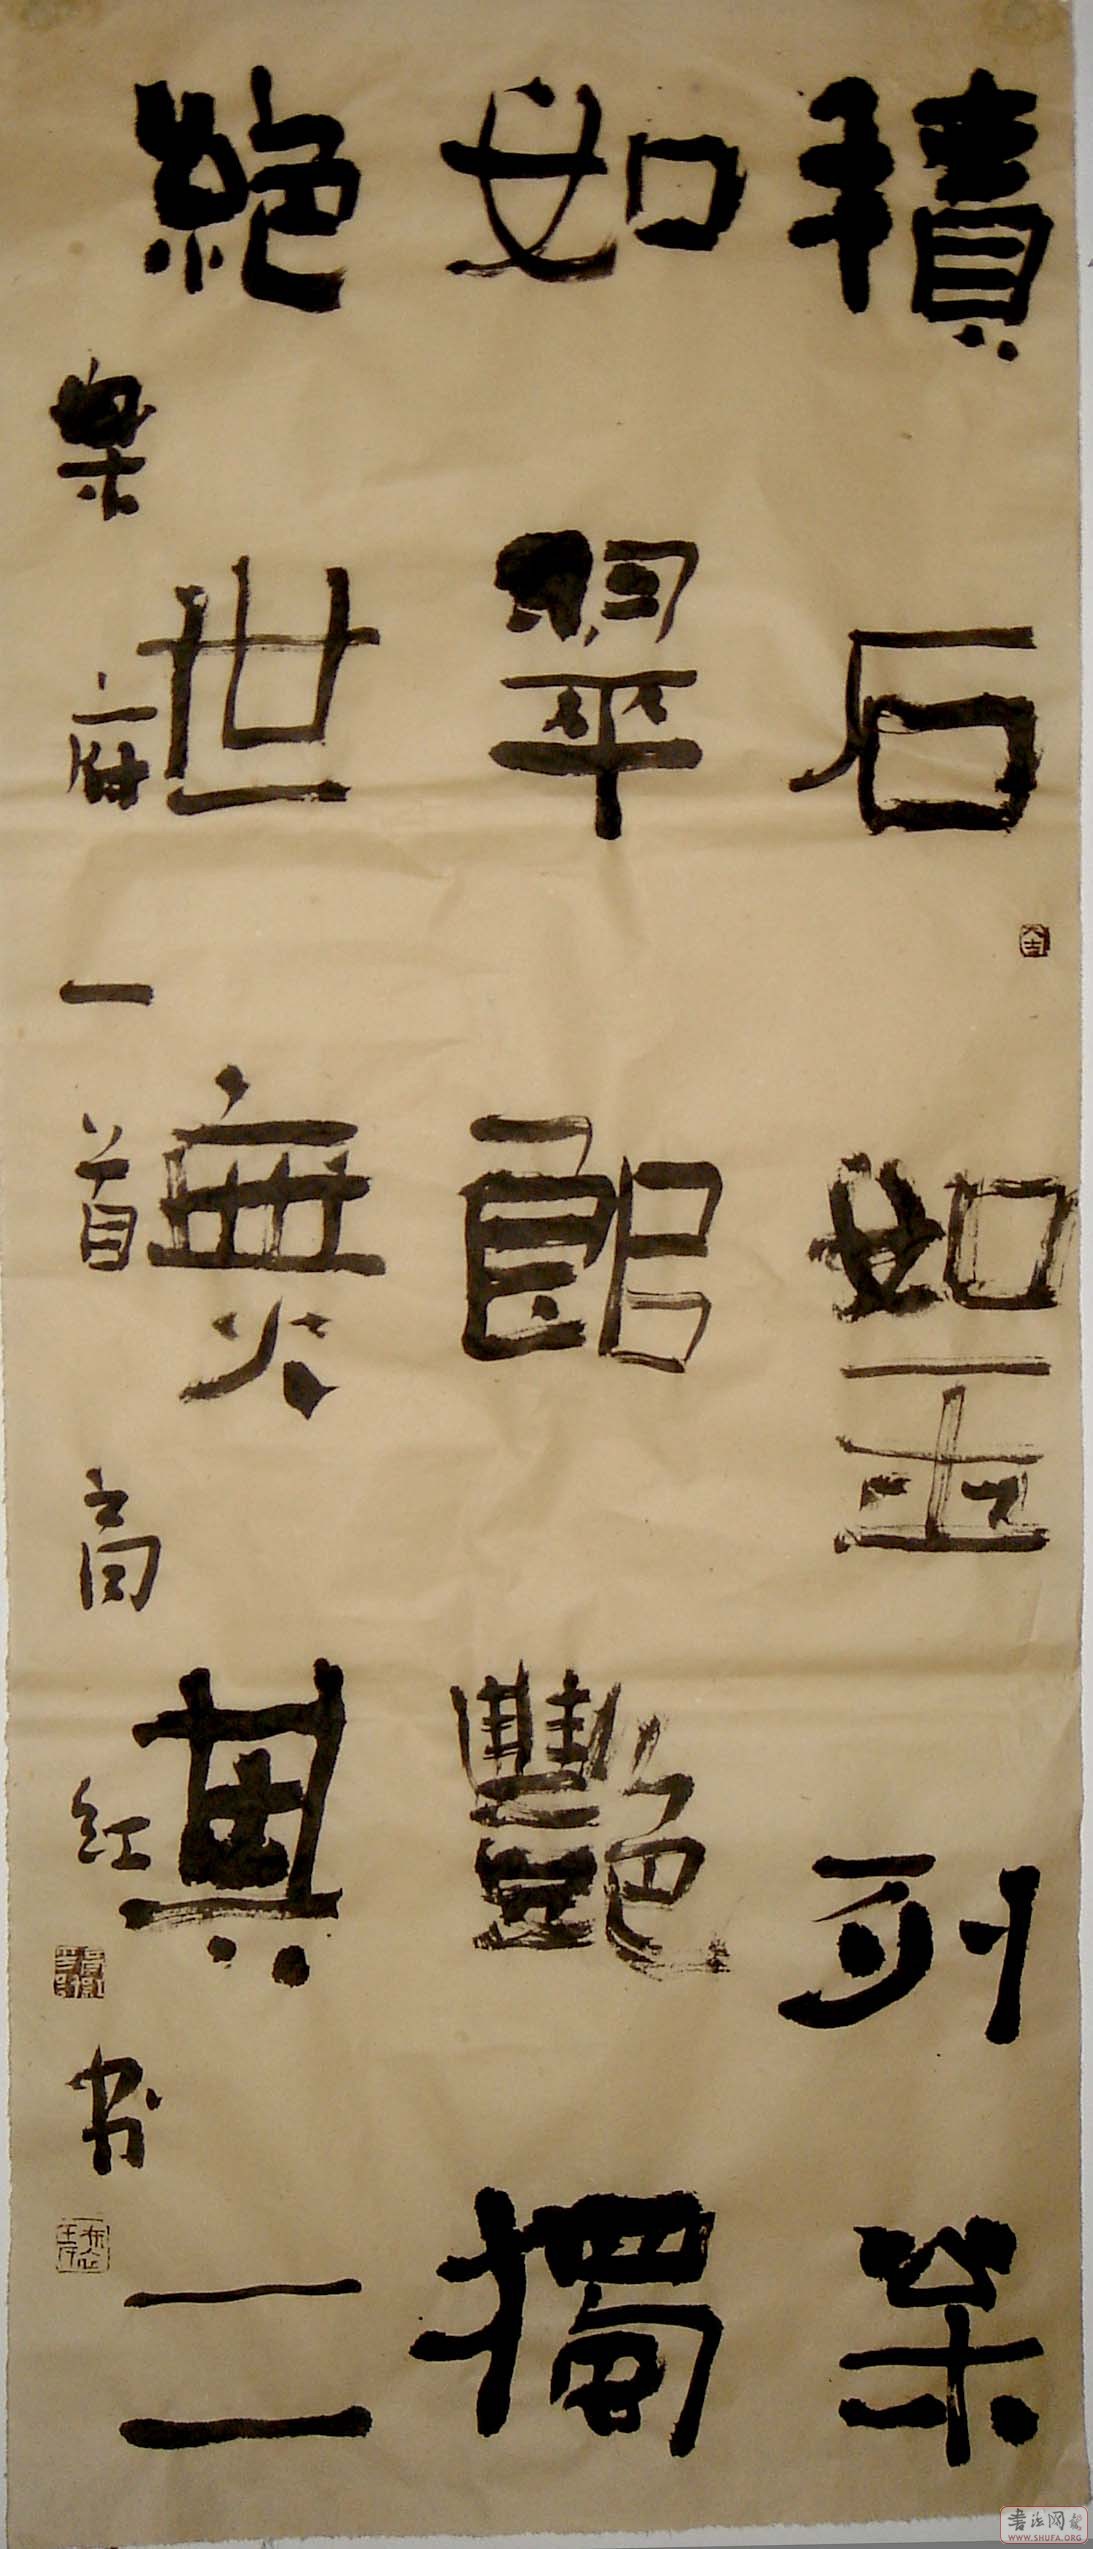 積石如玉列松
如翠郎豔獨
絕世無其二
樂府一首高红书
大吉
WWW.SHUFA.ORG